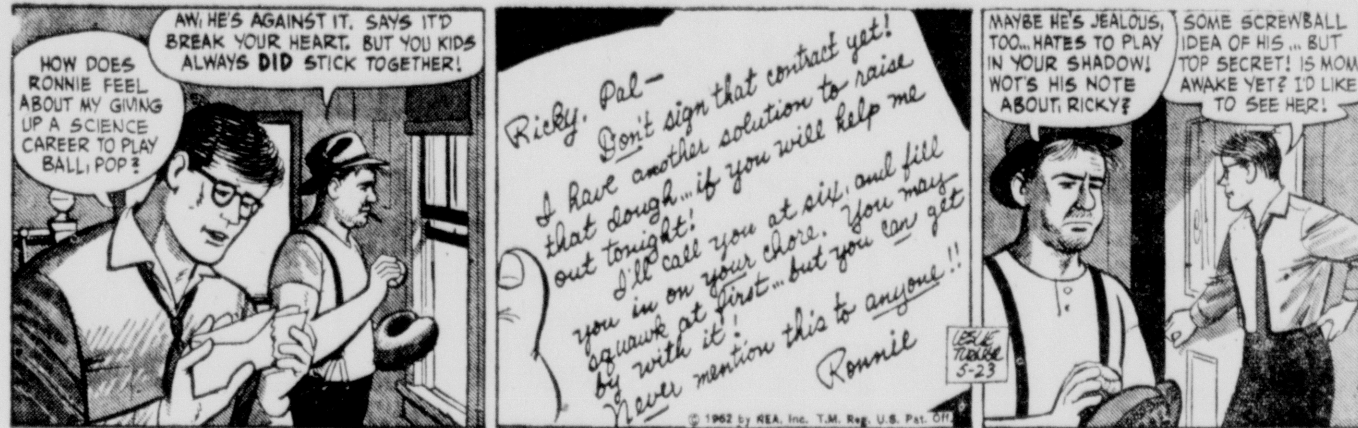 HOW DOES
RONNIE FEEL
ABOUT MY GIVING
UP A SCIENCE
CAREER TO PLAY
BALL, POP?
AW, HE'S AGAINST IT. SAYS IT'D
BREAK YOUR HEART. BUT YOU KIDS
ALWAYS DID STICK TOGETHER!
Ricky, Pal—
Don't sign that contract yet!
I have another solution to raise
that dough... if you will help me
out tonight!
I'll call you at six, and fill
you in on your chore. You may
squawk at first... but you can get
by with it!
Never mention this to anyone!!
Ronnie
© 1962 by NEA, Inc. T.M. Reg. U.S. Pat. Off.
MAYBE HE'S JEALOUS,
TOO... HATES TO PLAY
IN YOUR SHADOW!
WOT'S HIS NOTE
ABOUT, RICKY?
SOME SCREWBALL
IDEA OF HIS... BUT
TOP SECRET! IS MOM
AWAKE YET? I'D LIKE
TO SEE HER!
LESLIE
TURNER
5-23